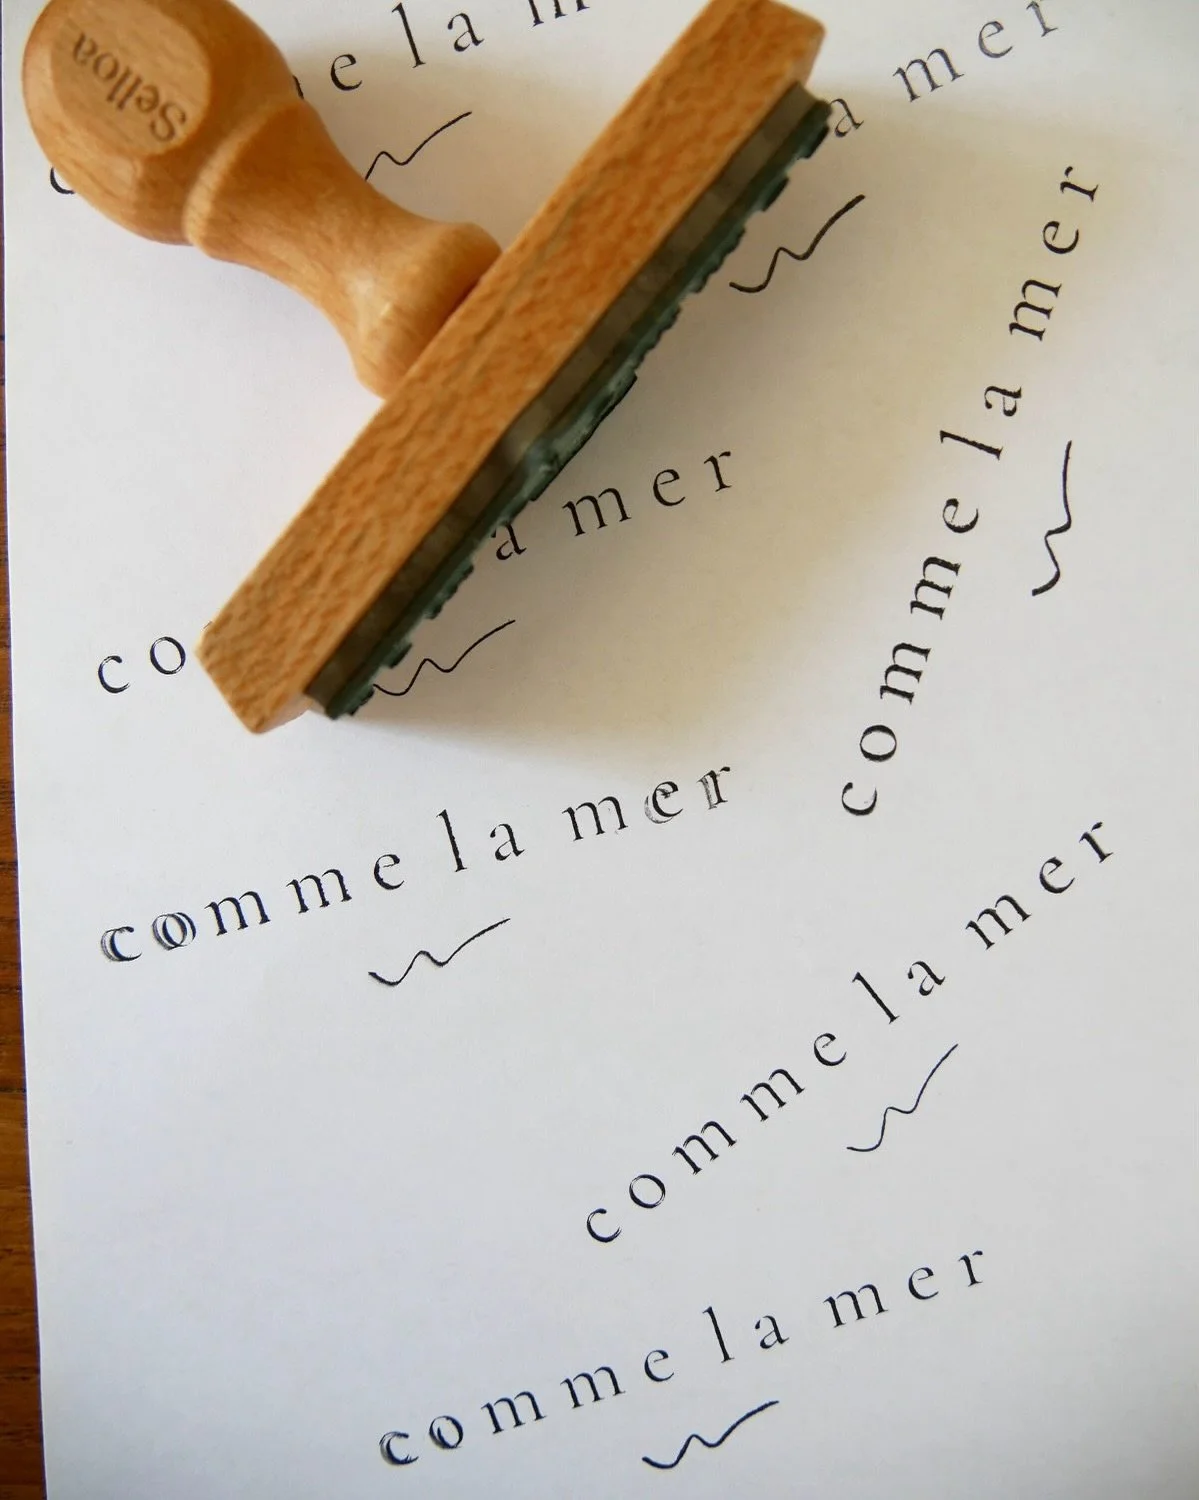 Selloa
e l a m
a mer
comme la mer
co a mer
comme la mer
comme la mer
comme la mer